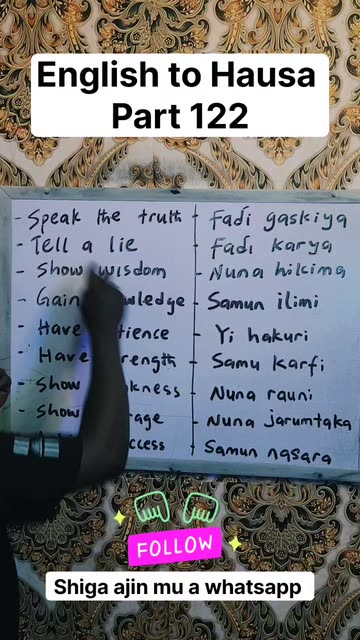 English to Hausa
Part 122
- Speak the truth - Fadi gaskiya
- Tell a lie - Fadi karya
- Show wisdom - Nuna hikima
- Gain - Samun ilimi
- Have - Yi hakuri
- Have - Samu karfi
- Show - Nuna rauni
- Show - Nuna jarumtaka
- Samun nasara
FOLLOW
Shiga ajin mu a whatsapp